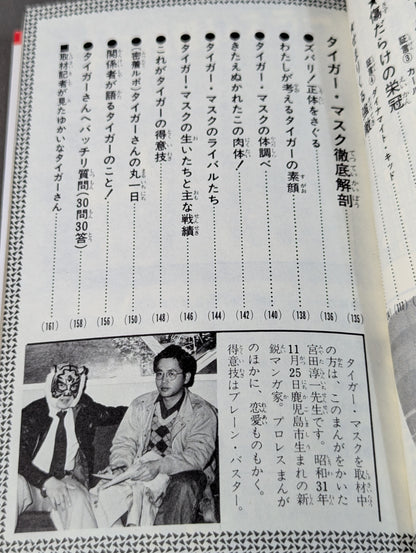 傷だらけの栄冠
証言③
マイト・キッド
タイガー・マスク徹底解剖 (135)
●ズバリ!正体をさぐる (136)
●わたしが考えるタイガーの素顔 (138)
●タイガー・マスクの体調べ (140)
●きたえぬかれたこの肉体! (142)
●タイガー・マスクのライバルたち (144)
●タイガー・マスクの生いたちと主な戦績 (146)
●これがタイガーの得意技 (148)
●(密着ルポ)タイガーさんの丸一日 (150)
●関係者が語るタイガーのこと! (156)
●タイガーさんへバッチリ質問(30問30答) (158)
■取材記者が見たゆかいなタイガーさん (161)
タイガー・マスクを取材中
の方は、このまんがをかいた
宮田淳一先生です。昭和31年
11月25日鹿児島市生まれの新
鋭マンガ家。プロレスまんが
のほかに、恋愛ものもかく。
得意技はブレーン・バスター。